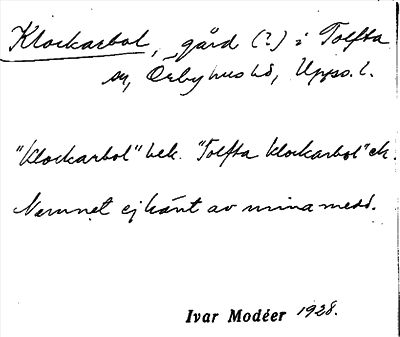 Klockarbol, gård (?) i Tolfta
sn, Örbyhus hd, Upps. l.
"Klockarbol" bek. "Tolfta klockarbol" ek.
Namnet ej känt av mina medd.
Ivar Modéer 1928.